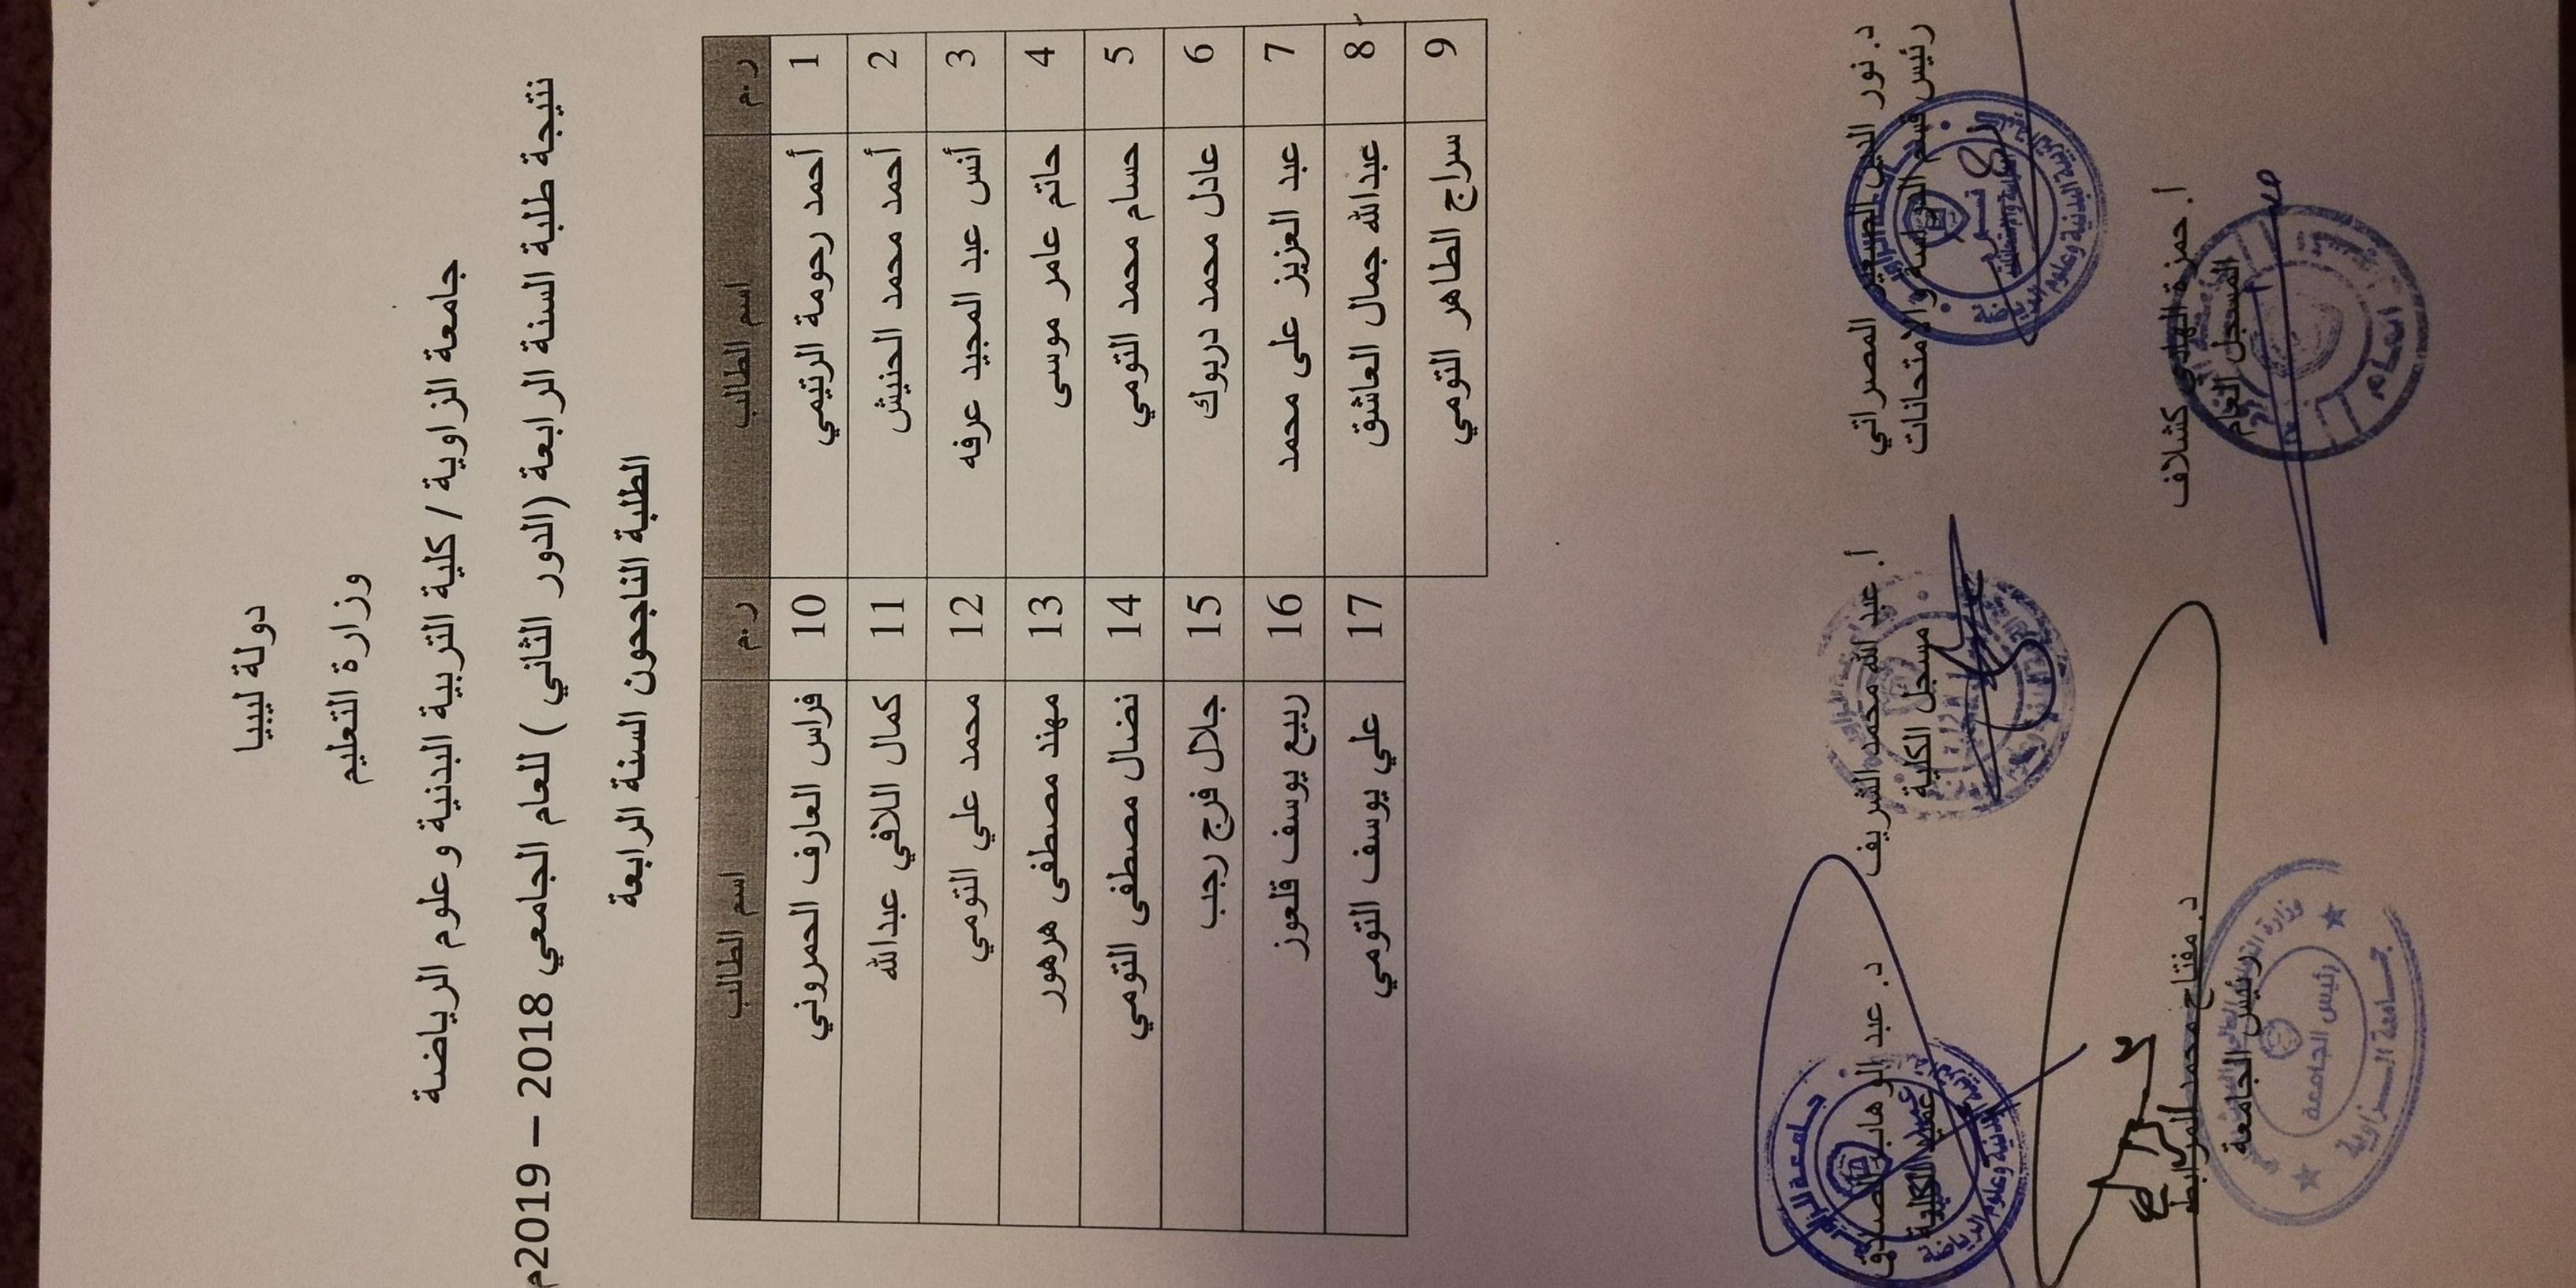 دولة ليبيا
وزارة التعليم
جامعة الزاوية / كلية التربية البدنية وعلوم الرياضة
نتيجة طلبة السنة الرابعة (الدور الثاني ) للعام الجامعي 2018 – 2019م
الطلبة الناجحون السنة الرابعة
ر.م اسم الطالب ر.م اسم الطالب
1 أحمد رحومة الرتيمي 10 فراس العارف الحمروني
2 أحمد محمد الحنيش 11 كمال اللافي عبدالله
3 أنس عبد المجيد عرفه 12 محمد علي التومي
4 حاتم عامر موسى 13 مهند مصطفى هرهور
5 حسام محمد التومي 14 نضال مصطفى التومي
6 عادل محمد دربوك 15 جلال فرج رجب
7 عبد العزيز على محمد 16 ربيع يوسف قلعوز
8 عبدالله جمال العاشق 17 علي يوسف التومي
9 سراج الطاهر التومي
د. نور الدين المصراتي أ. عبد الله محمد الشريف د. عبد الوهاب الصادق
رئيس قسم الدراسة والامتحانات مسجل الكلية عميد الكلية
أ. حمزة الهادي كشلاف د. مفتاح محمد المرابط
المسجل العام رئيس الجامعة
جامعة الزاوية
رئيس الجامعة